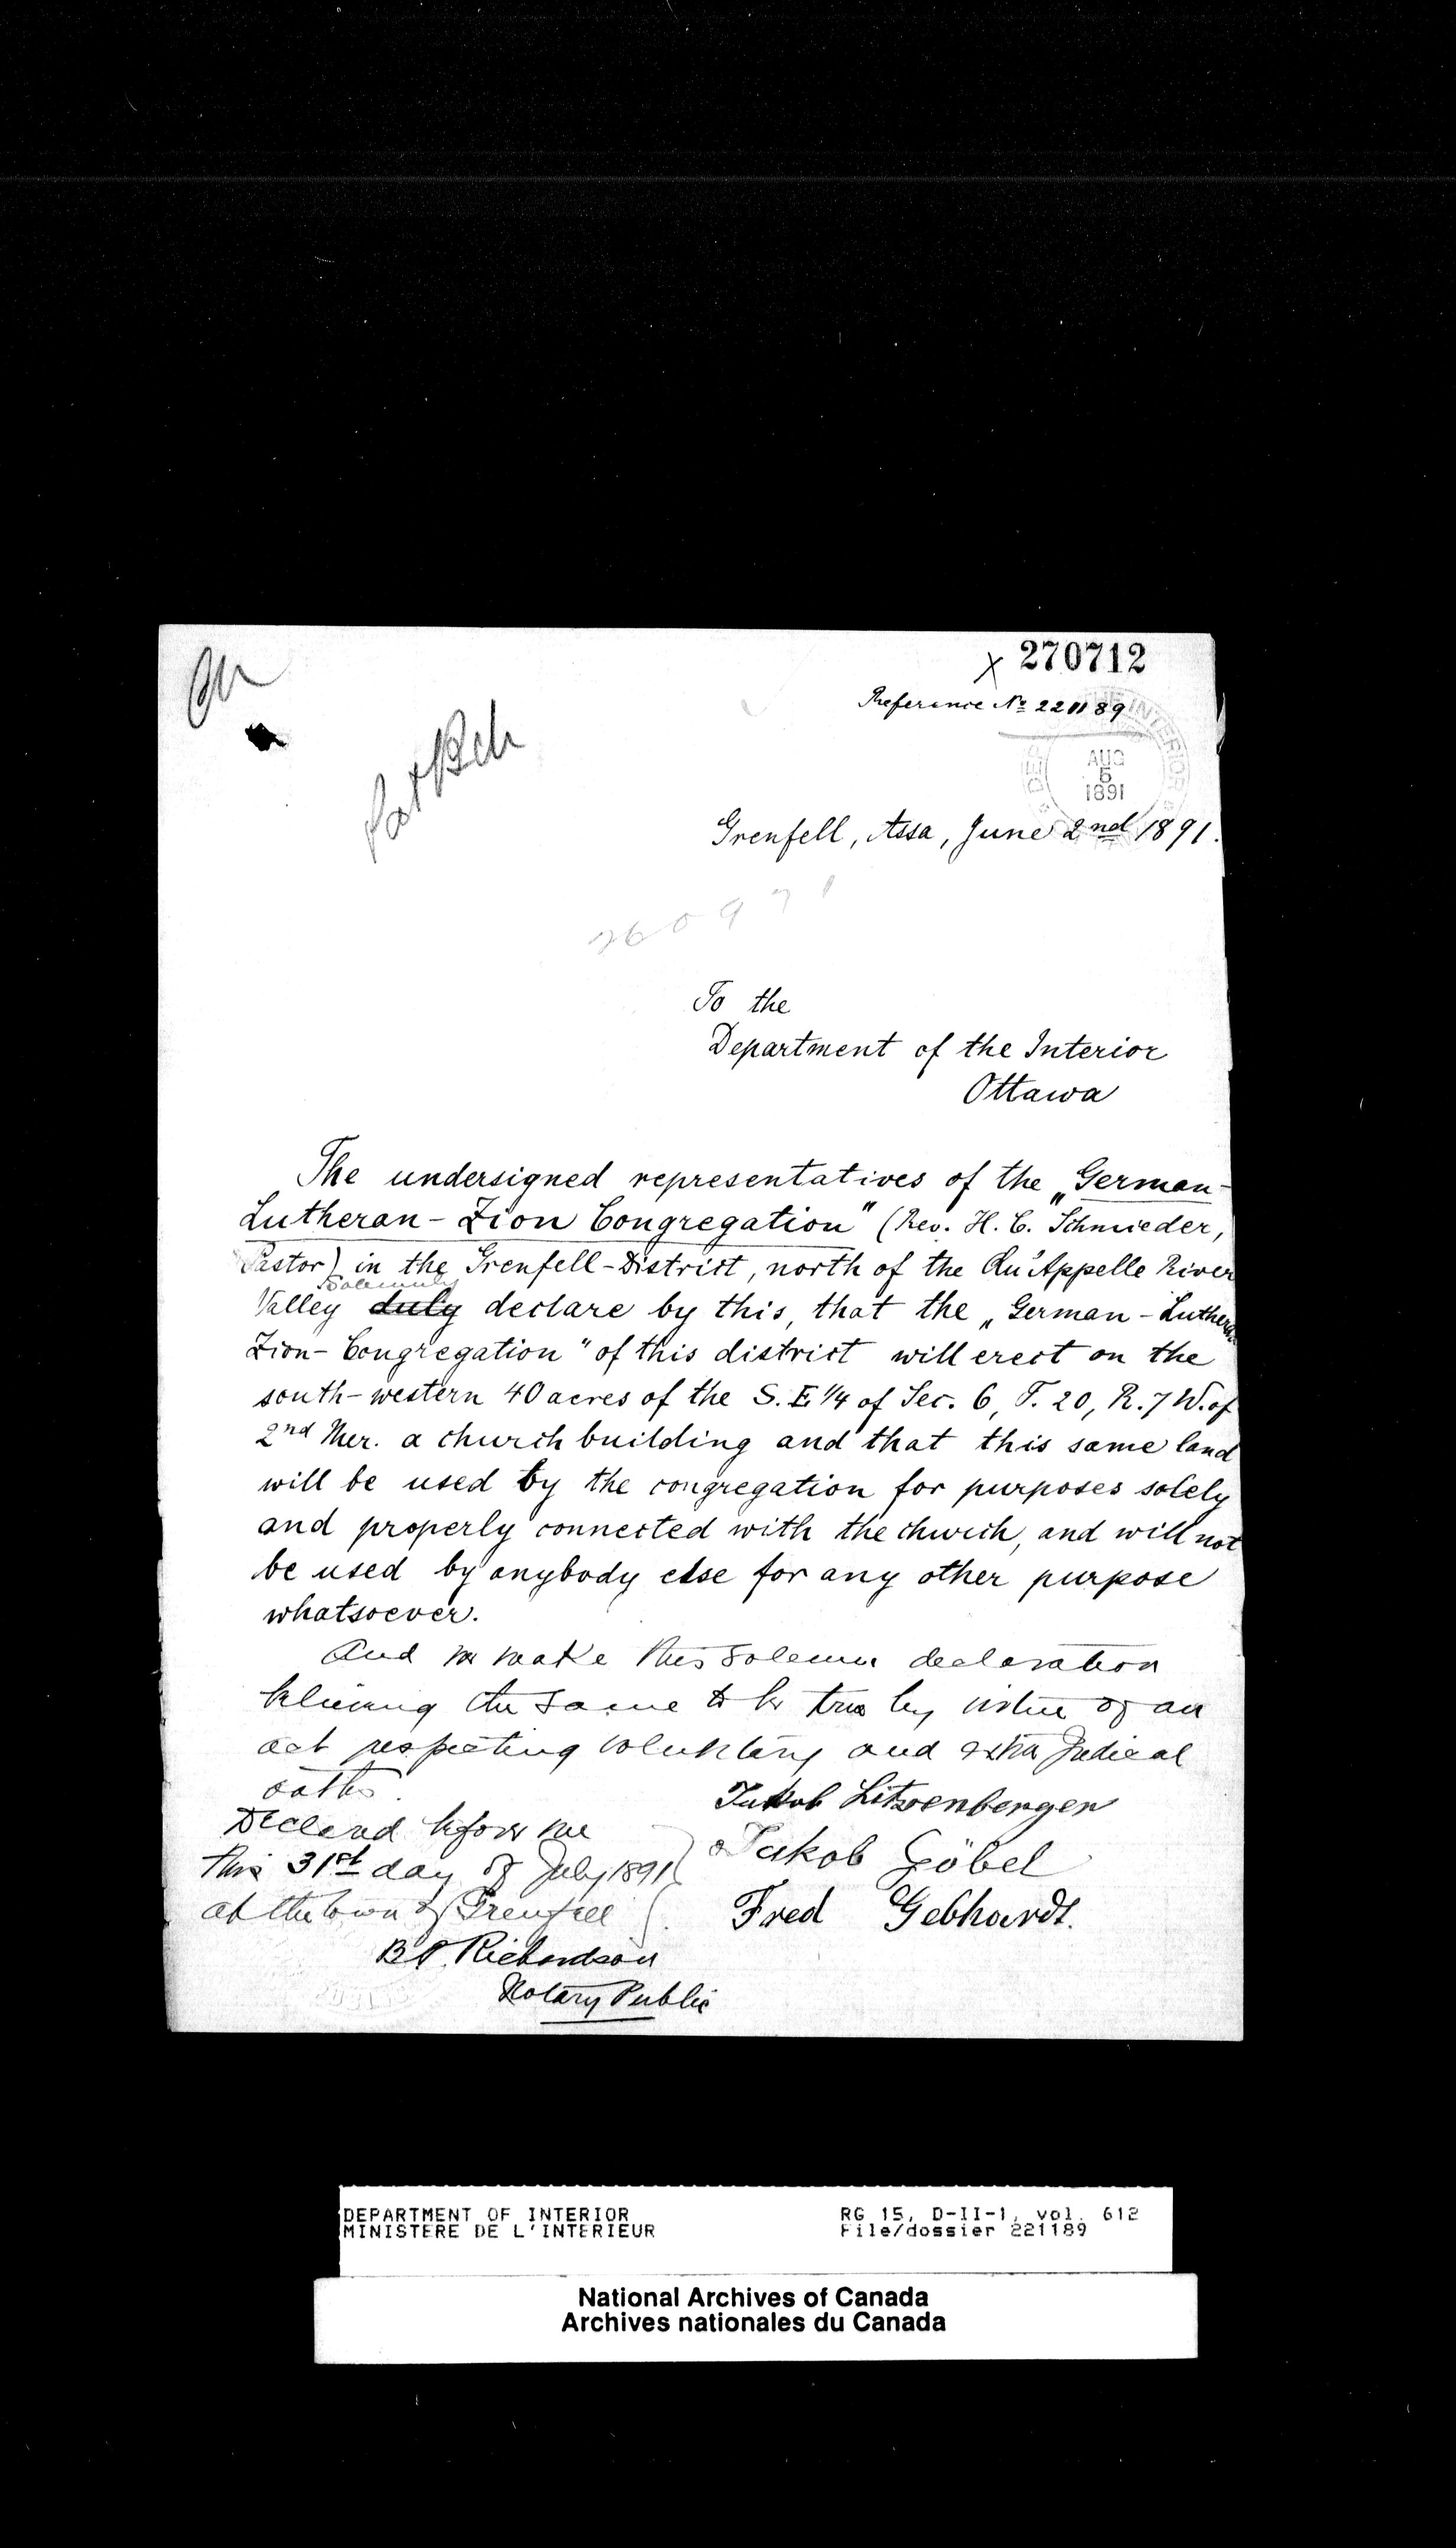 270712
Reference No 221189
AUG
5
1891
Grenfell, Assa, June 2nd 1891.
26097
To the
Department of the Interior
Ottawa
The undersigned representatives of the „German-
Lutheran-Zion Congregation" (Rev. H. C. Schmieder,
Pastor) in the Grenfell-District, north of the Qu'Appelle River
Solemnly
Valley duly declare by this, that the „German-Lutheran
Zion-Congregation" of this district will erect on the
south-western 40 acres of the S.E. 1/4 of Sec. 6, T. 20, R. 7 W. of
2nd Mer. a church building and that this same land
will be used by the congregation for purposes solely
and properly connected with the church, and will not
be used by anybody else for any other purpose
whatsoever.
And we make this solemn declaration
believing the same to be true by virtue of an
act respecting voluntary and extra judicial
oaths.
Jakob Litzenberger
Declared before me
Jakob Göbel
this 31st day of July 1891
at the town of Grenfell
Fred Gebhardt.
B P. Richardson
Notary Public
DEPARTMENT OF INTERIOR
MINISTERE DE L'INTERIEUR
RG 15, D-II-1, vol. 612
File/dossier 221189
National Archives of Canada
Archives nationales du Canada